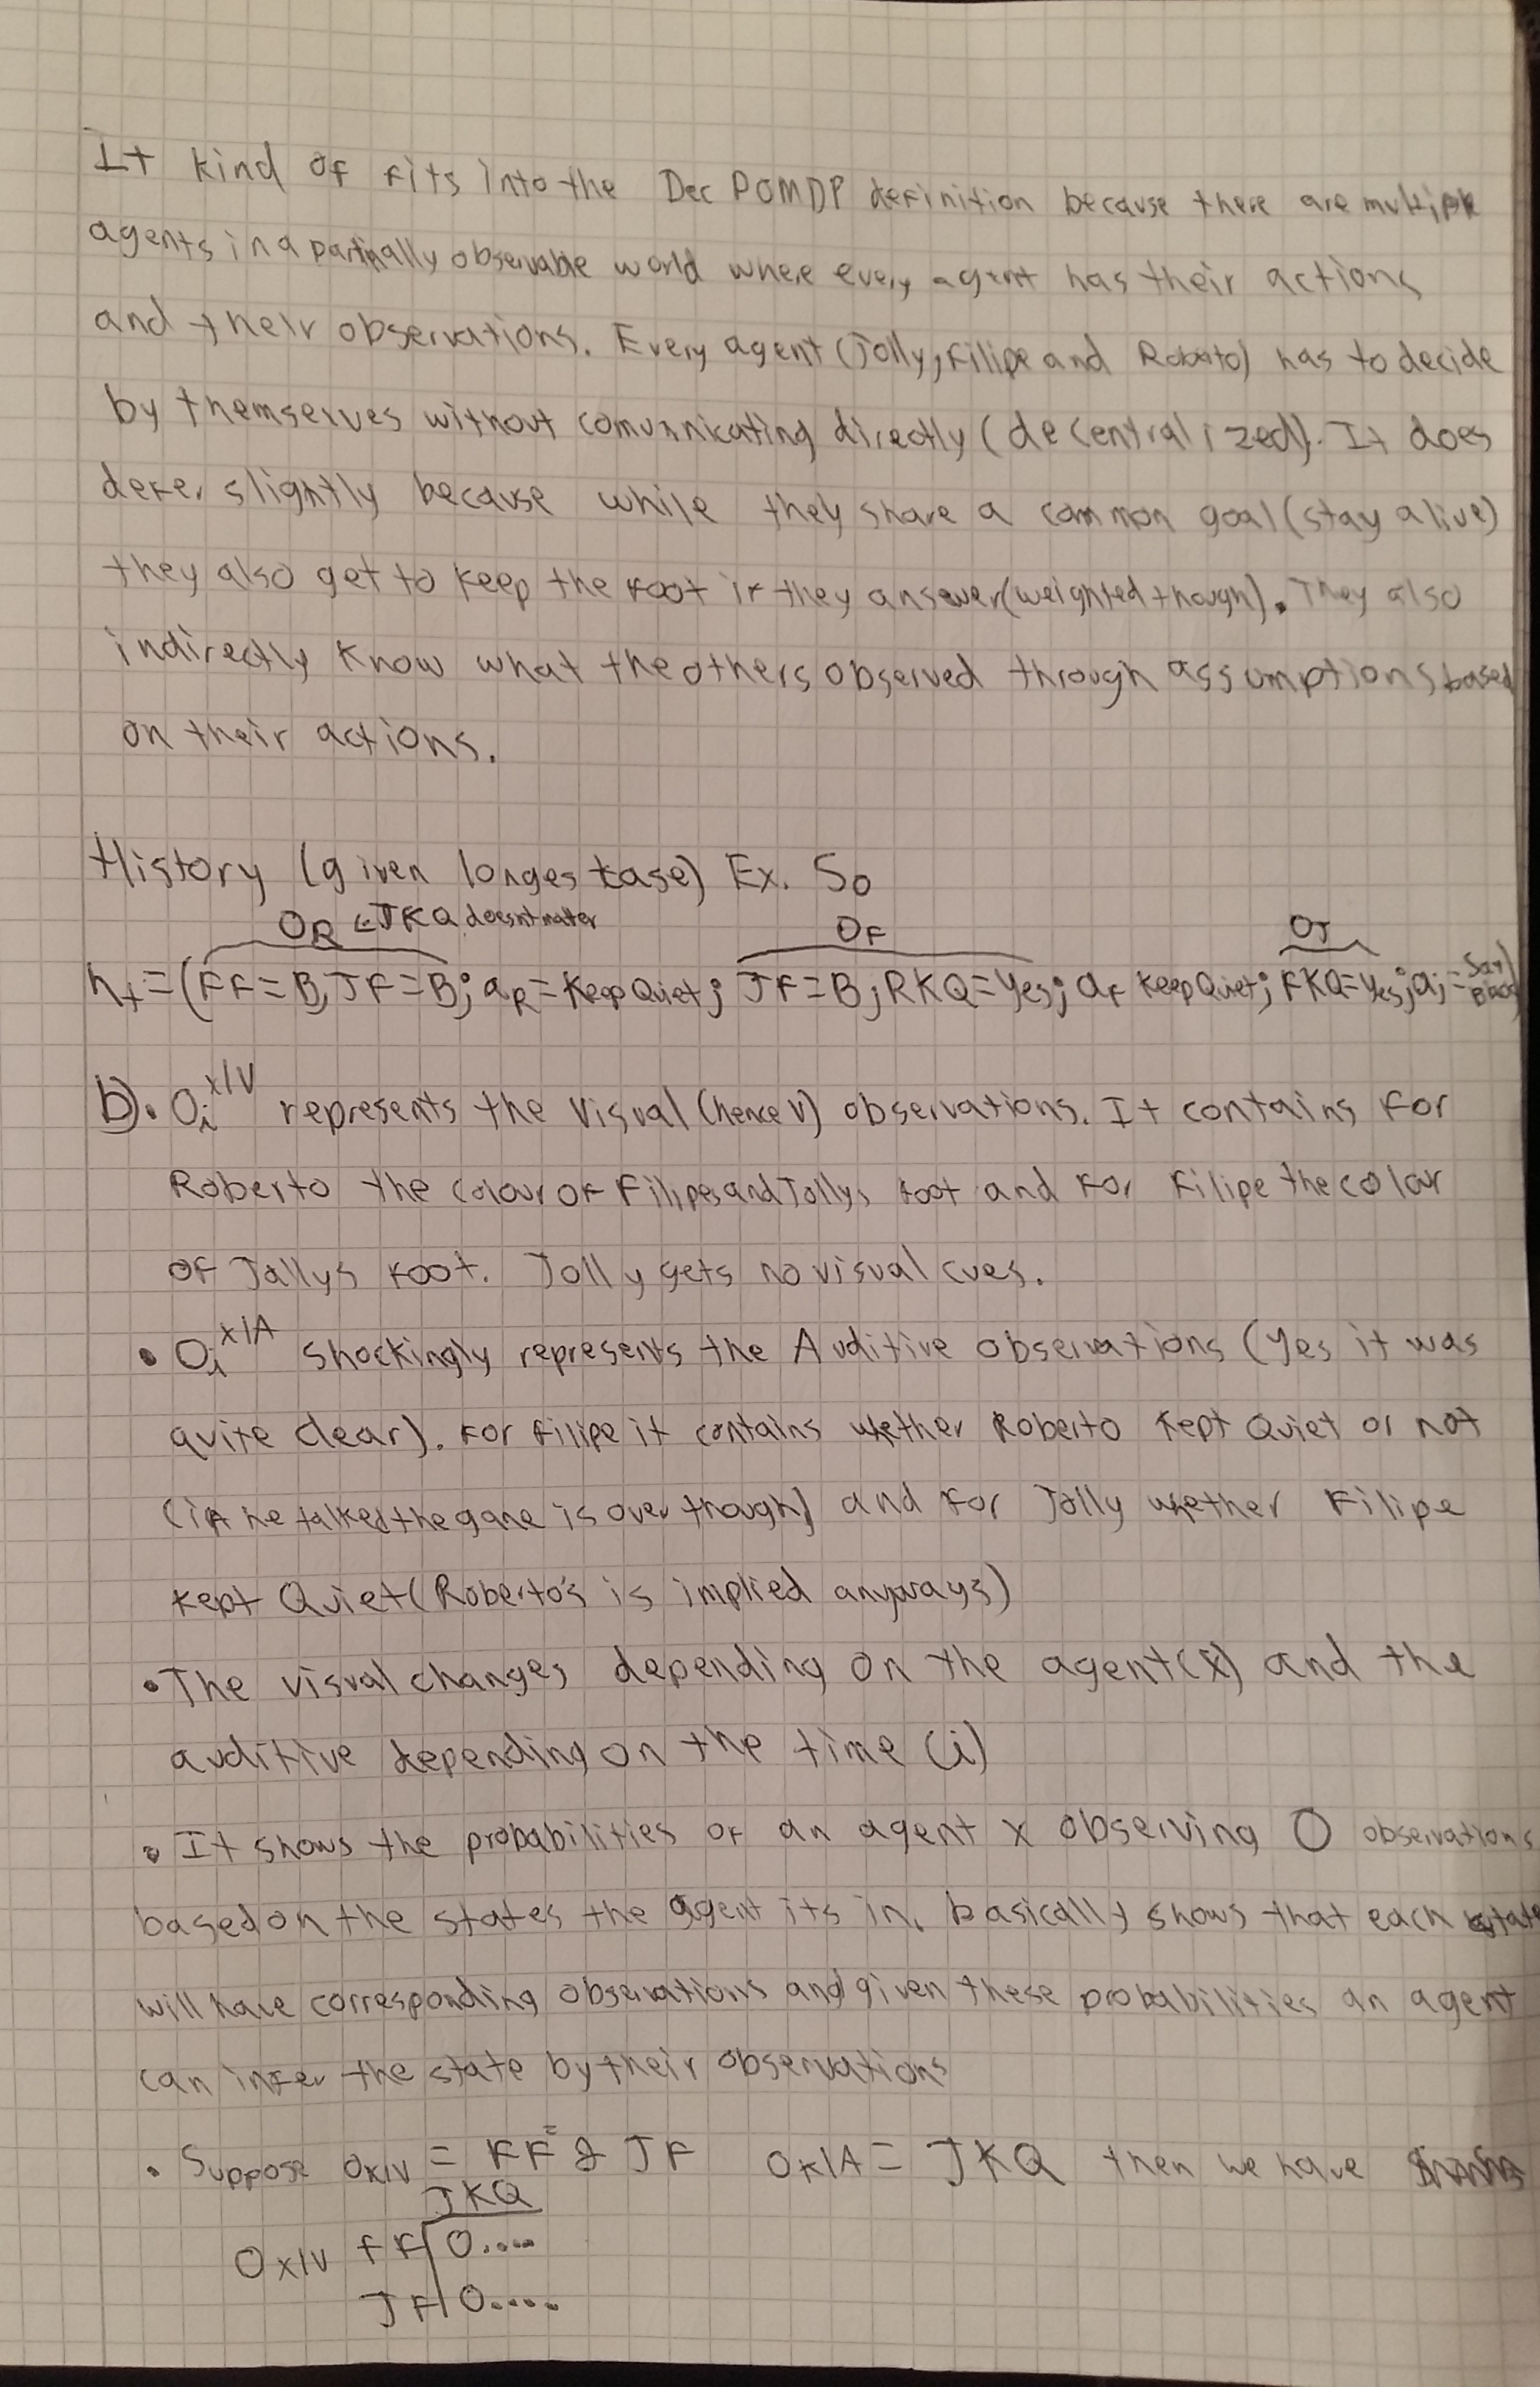 It kind of fits into the Dec POMDP definition because there are multiple
agents in a partinally observable world where every agent has their actions
and their observations. Every agent (Jolly, Filipe and Roberto) has to decide
by themselves without comunnicating directly (decentralized). It does
defer slightly because while they share a common goal (stay alive)
they also get to keep the foot if they answer (weighted though). They also
indirectly know what the others observed through assumptions based
on their actions.
History (given longest case) Ex. S₀
O_R ← JKQ doesnt matter O_F O_J
h_t = (FF=B, JF=B; a_R = Keep Quiet; JF=B; RKQ=Yes; a_F Keep Quiet; FKQ=Yes; a_j = Say Black)
b). O_i^x/V represents the Visual (hence V) observations. It contains for
Roberto the colour of Filipes and Jollys foot and for Filipe the colour
of Jollys foot. Jolly gets no visual cues.
• O_i^x/A shockingly represents the Auditive observations (Yes it was
quite clear). For Filipe it contains whether Roberto kept Quiet or not
(if he talked the game is over though) and for Jolly whether Filipe
kept Quiet (Roberto's is implied anyways)
• The visual changes depending on the agent (x) and the
auditive depending on the time (i)
• It shows the probabilities of an agent x observing O observations
based on the states the agent its in, basically shows that each state
will have corresponding observations and given these probabilities an agent
can infer the state by their observations
• Suppose O_x/V = FF & JF O_x/A = JKQ then we have
JKQ
O_x/V FF | 0....
JF | 0.....